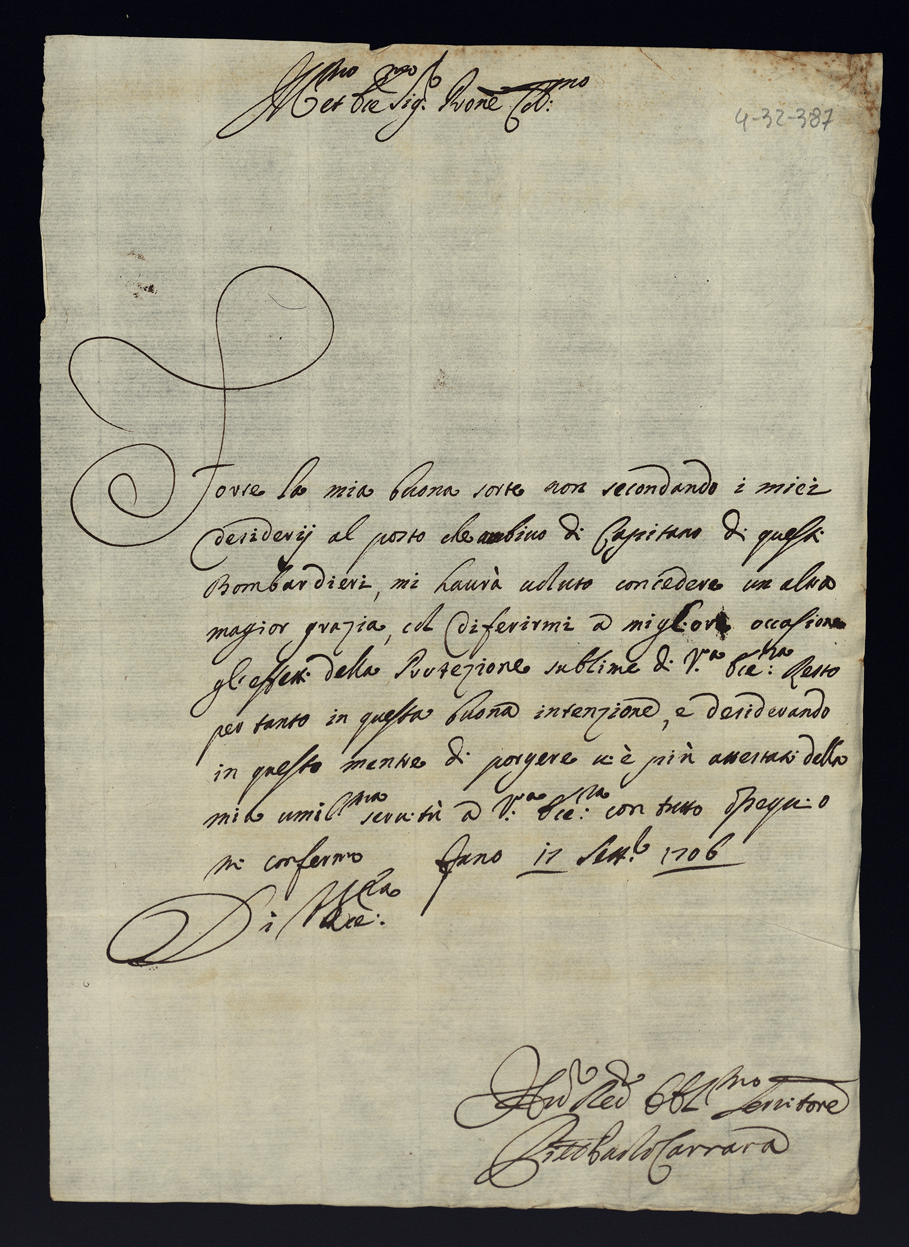 Ill.mo et Ecc.mo Sig.r Prone Col.mo
4-32-387
Forse la mia buona sorte non secondando i miei
desiderij al posto che ambivo di Capitano di questi
Bombardieri, mi haurà uoluto concedere un altra
magior grazia, col diferirmi a migliore occasione
gl'effetti della Protezione sublime di V.ra Ecc.za Resto
per tanto in questa buona intenzione, e desiderando
in questo mentre di porgere u: è più attestati della
mia umil.ma seruitù a V.ra Ecc.za con tutto osequio
mi confermo Fano 17 Sett.b 1706
Di V.ra Ecc.za
Obbl.mo Seruitore
Carrara